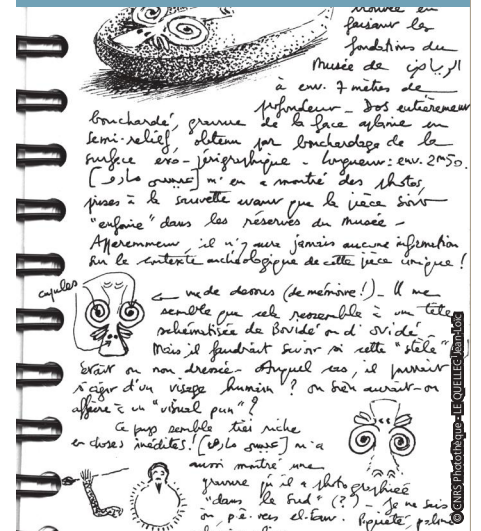 trouvée en
faisant les
fondations du
Musée de الرياض
à env. 7 mètres de
profondeur – Dos entièrement
bouchardé, gravure de la face aplanie en
semi-relief, obtenu par bouchardage de la
surface exo-périgraphique – Longueur : env. 2m50.
m'en a montré des photos,
prises à la sauvette avant que la pièce soit
"enfouie" dans les réserves du Musée –
Apparemment, il n'y aura jamais aucune information
sur le contexte archéologique de cette pièce unique !
cupules
← vue de dessus (de mémoire !) – Il me
semble que cela ressemble à une tête
schématisée de Bovidé ou d'ovidé –
Mais il faudrait savoir si cette "stèle"
était ou non dressée – Auquel cas, il pourrait
s'agir d'un visage humain ? ou bien aurait-on
affaire à un "visual pun" ?
Ce pays semble très riche
en choses inédites ! m'a
aussi montré une
gravure qu'il a photographiée
"dans le Sud" (?) – Je ne sais
où, p.ê. vers
© CNRS Photothèque - LE QUELLEC Jean-Loïc